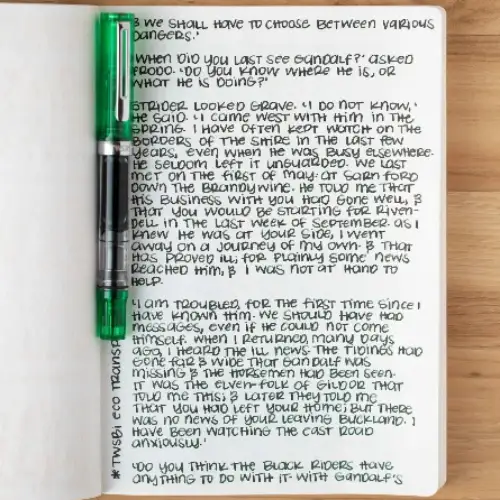 & WE SHALL HAVE TO CHOOSE BETWEEN VARIOUS
DANGERS.'
'WHEN DID YOU LAST SEE GANDALF?' ASKED
FRODO. 'DO YOU KNOW WHERE HE IS, OR
WHAT HE IS DOING?'
STRIDER LOOKED GRAVE. 'I DO NOT KNOW,'
HE SAID. 'I CAME WEST WITH HIM IN THE
SPRING. I HAVE OFTEN KEPT WATCH ON THE
BORDERS OF THE SHIRE IN THE LAST FEW
YEARS, EVEN WHEN HE WAS BUSY ELSEWHERE.
HE SELDOM LEFT IT UNGUARDED. WE LAST
MET ON THE FIRST OF MAY: AT SARN FORD
DOWN THE BRANDYWINE. HE TOLD ME THAT
HIS BUSINESS WITH YOU HAD GONE WELL, &
THAT YOU WOULD BE STARTING FOR RIVEN-
DELL IN THE LAST WEEK OF SEPTEMBER. AS I
KNEW HE WAS AT YOUR SIDE, I WENT
AWAY ON A JOURNEY OF MY OWN. & THAT
HAS PROVED ILL; FOR PLAINLY SOME NEWS
REACHED HIM, & I WAS NOT AT HAND TO
HELP.
'I AM TROUBLED, FOR THE FIRST TIME SINCE I
HAVE KNOWN HIM. WE SHOULD HAVE HAD
MESSAGES, EVEN IF HE COULD NOT COME
HIMSELF. WHEN I RETURNED, MANY DAYS
AGO, I HEARD THE ILL NEWS. THE TIDINGS HAD
GONE FAR & WIDE THAT GANDALF WAS
MISSING & THE HORSEMEN HAD BEEN SEEN.
IT WAS THE ELVEN-FOLK OF GILDOR THAT
TOLD ME THIS; & LATER THEY TOLD ME
THAT YOU HAD LEFT YOUR HOME; BUT THERE
WAS NO NEWS OF YOUR LEAVING BUCKLAND. I
HAVE BEEN WATCHING THE EAST ROAD
ANXIOUSLY.'
'DO YOU THINK THE BLACK RIDERS HAVE
ANYTHING TO DO WITH IT- WITH GANDALF'S
* TWSBI ECO TRANSP